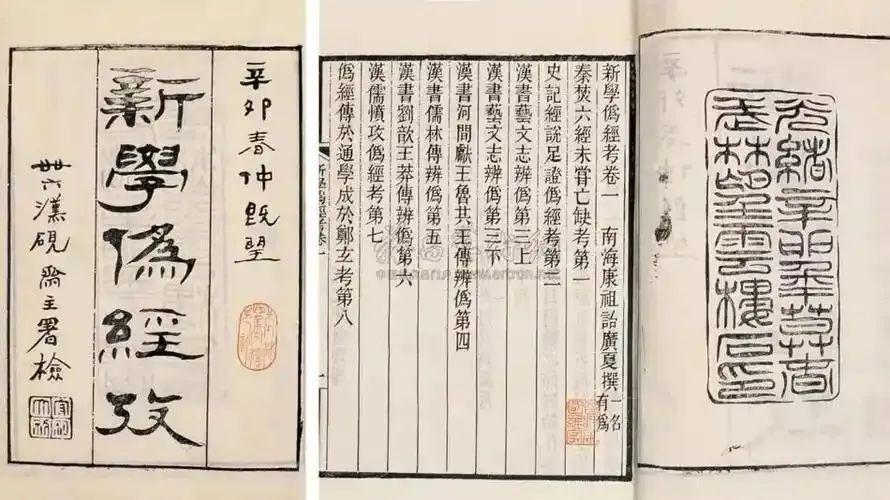 辛卯春仲既望
新學偽經攷
卅六漢硯齋主署檢
新學僞經考卷一 南海康祖詒廣夏撰 一名有爲
秦焚六經未嘗亡缺考第一
史記經說足證僞經考第二
漢書藝文志辨僞第三上
漢書藝文志辨僞第三下
漢書河間獻王魯共王傳辨僞第四
漢書儒林傳辨僞第五
漢書劉歆王莽傳辨僞第六
漢儒憤攻僞經考第七
僞經傳於通學成於鄭玄考第八
新學僞經考卷一
光緒辛卯年
武林望雲樓石印